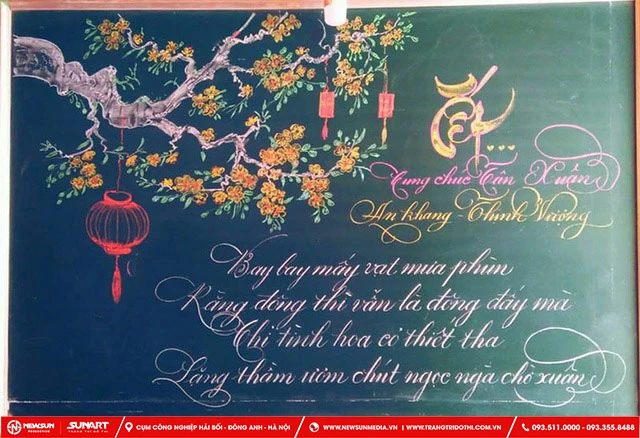 Tết...
Cung chúc Tân Xuân
An Khang - Thịnh Vượng
Bay bay mấy vạt mưa phùn
Rằng đông thì vẫn là đông đấy mà
Chỉ tình hoa cỏ thiết tha
Lặng thầm ươm chút ngọc ngà cho xuân
NEWSUN
PRODUCTION
SUNART
TRANG TRÍ ĐÔ THỊ
CỤM CÔNG NGHIỆP HẢI BỐI - ĐÔNG ANH - HÀ NỘI
WWW.NEWSUNMEDIA.VN | WWW.TRANGTRIDOTHI.COM
093.511.0000 - 093.355.8488